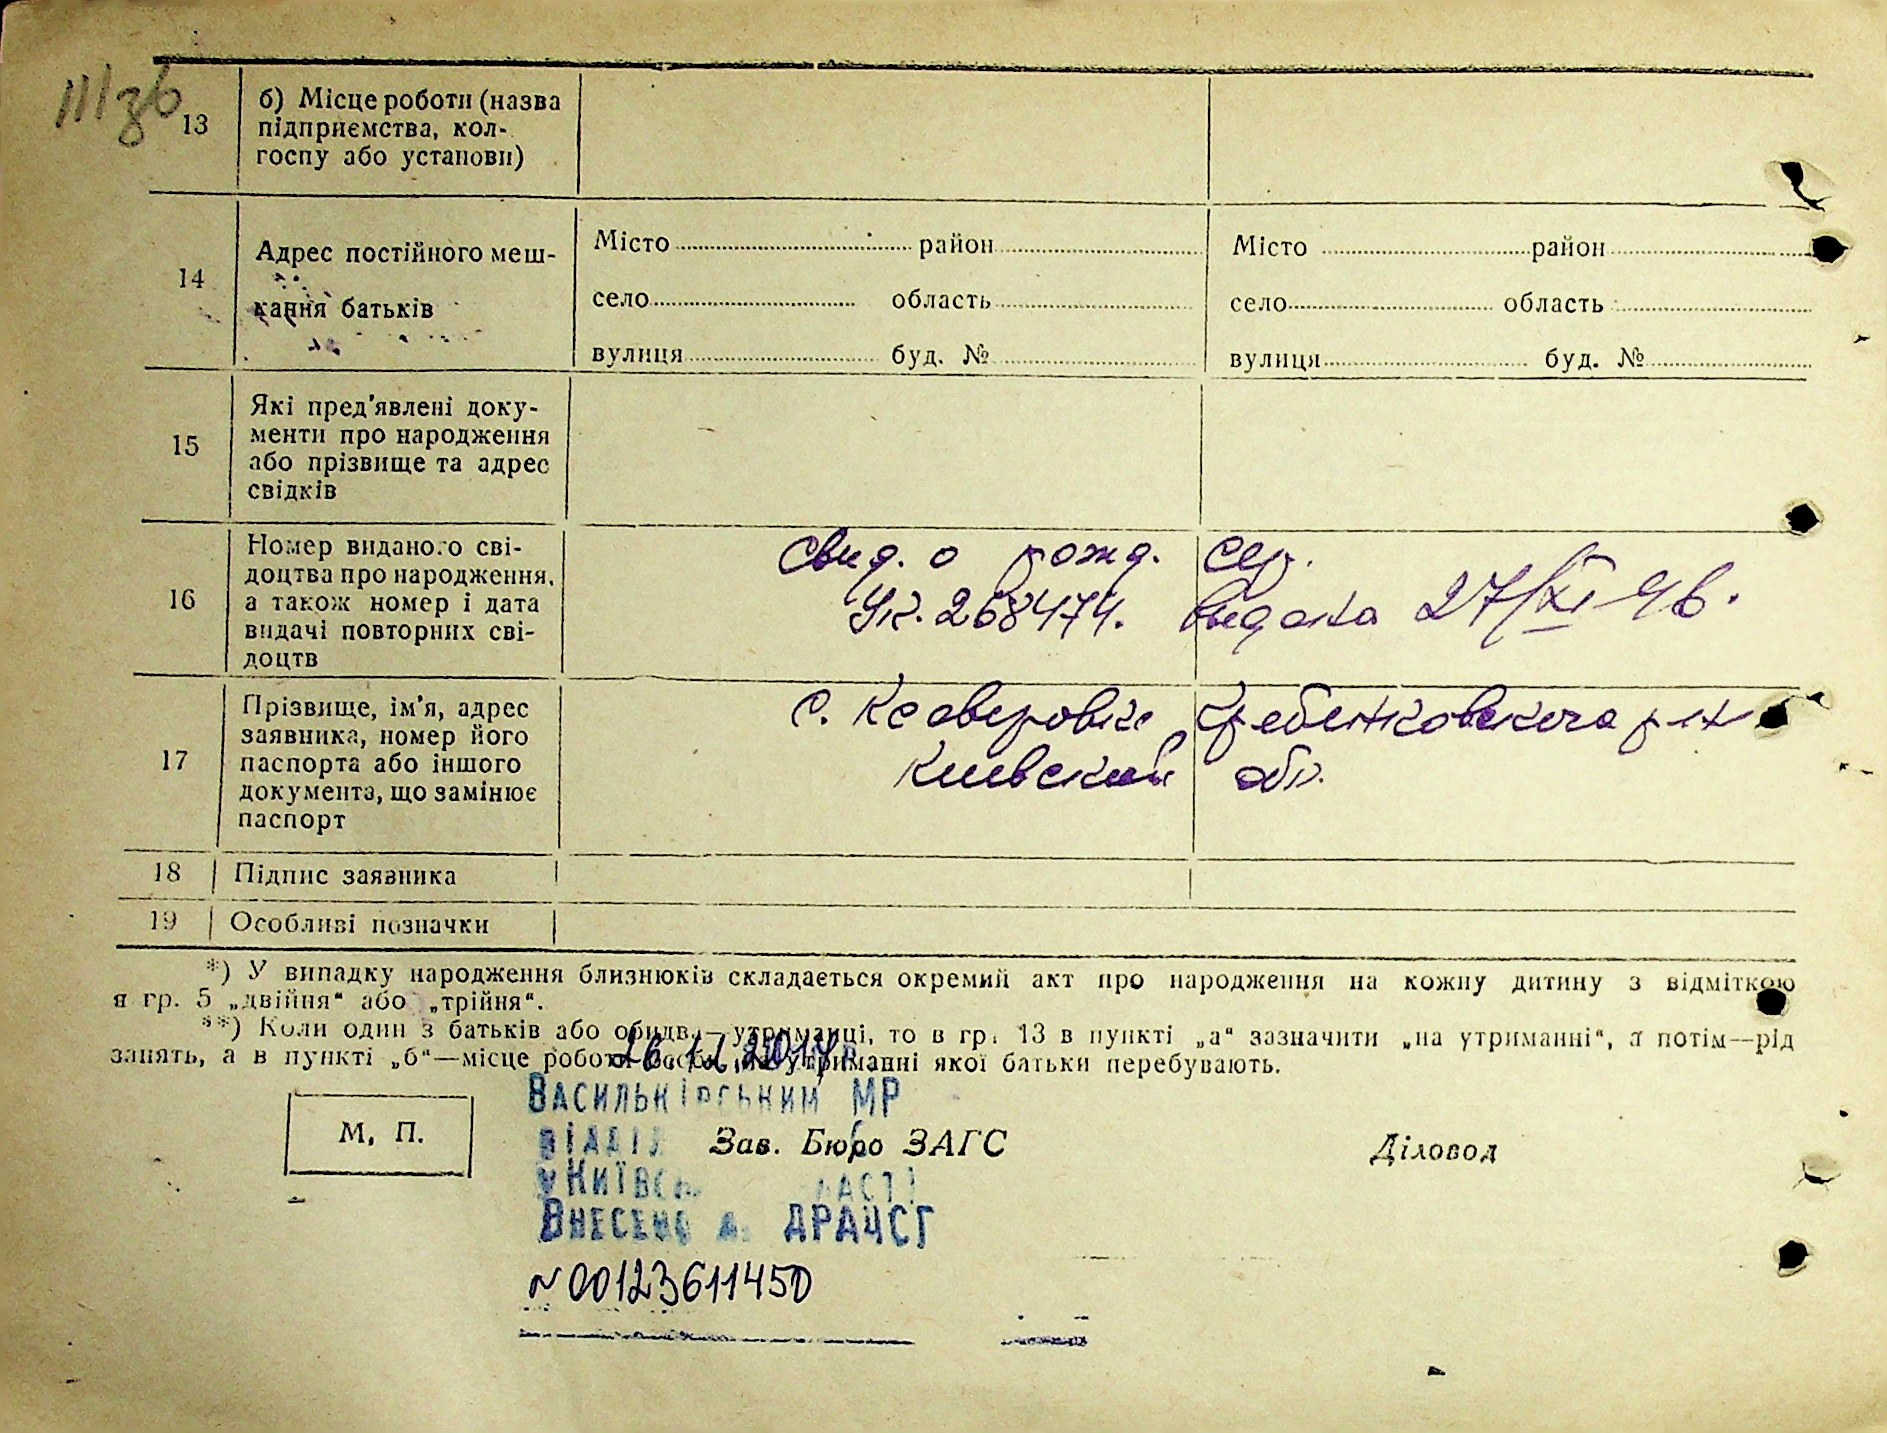 13
б) Місце роботи (назва
підприємства, кол-
госпу або установи)
14
Адрес постійного меш-
кання батьків
Місто район
село область
вулиця буд. №
Місто район
село область
вулиця буд. №
15
Які пред'явлені доку-
менти про народження
або прізвище та адрес
свідків
16
Номер виданого сві-
доцтва про народження,
а також номер і дата
видачі повторних сві-
доцтв
Свид. о рожд. сер.
УК. 268474. выдано 27/XI-46.
17
Прізвище, ім'я, адрес
заявника, номер його
паспорта або іншого
документа, що замінює
паспорт
с. Ксаверовке Гребенковского р-н
Киевской обл.
18 Підпис заявника
19 Особливі позначки
*) У випадку народження близнюків складається окремий акт про народження на кожну дитину з відміткою
в гр. 5 „двійня" або „трійня".
**) Коли один з батьків або обидв.— утриманці, то в гр. 13 в пункті „а" зазначити „на утриманні", а потім—рід
занять, а в пункті „б"—місце роботи особи, на утриманні якої батьки перебувають.
26.12.2014
Васильківським МР
М. П.
відділ
Зав. Бюро ЗАГС
Діловод
у Київс ласті
Внесено до ДРАЦСГ
№00123611450